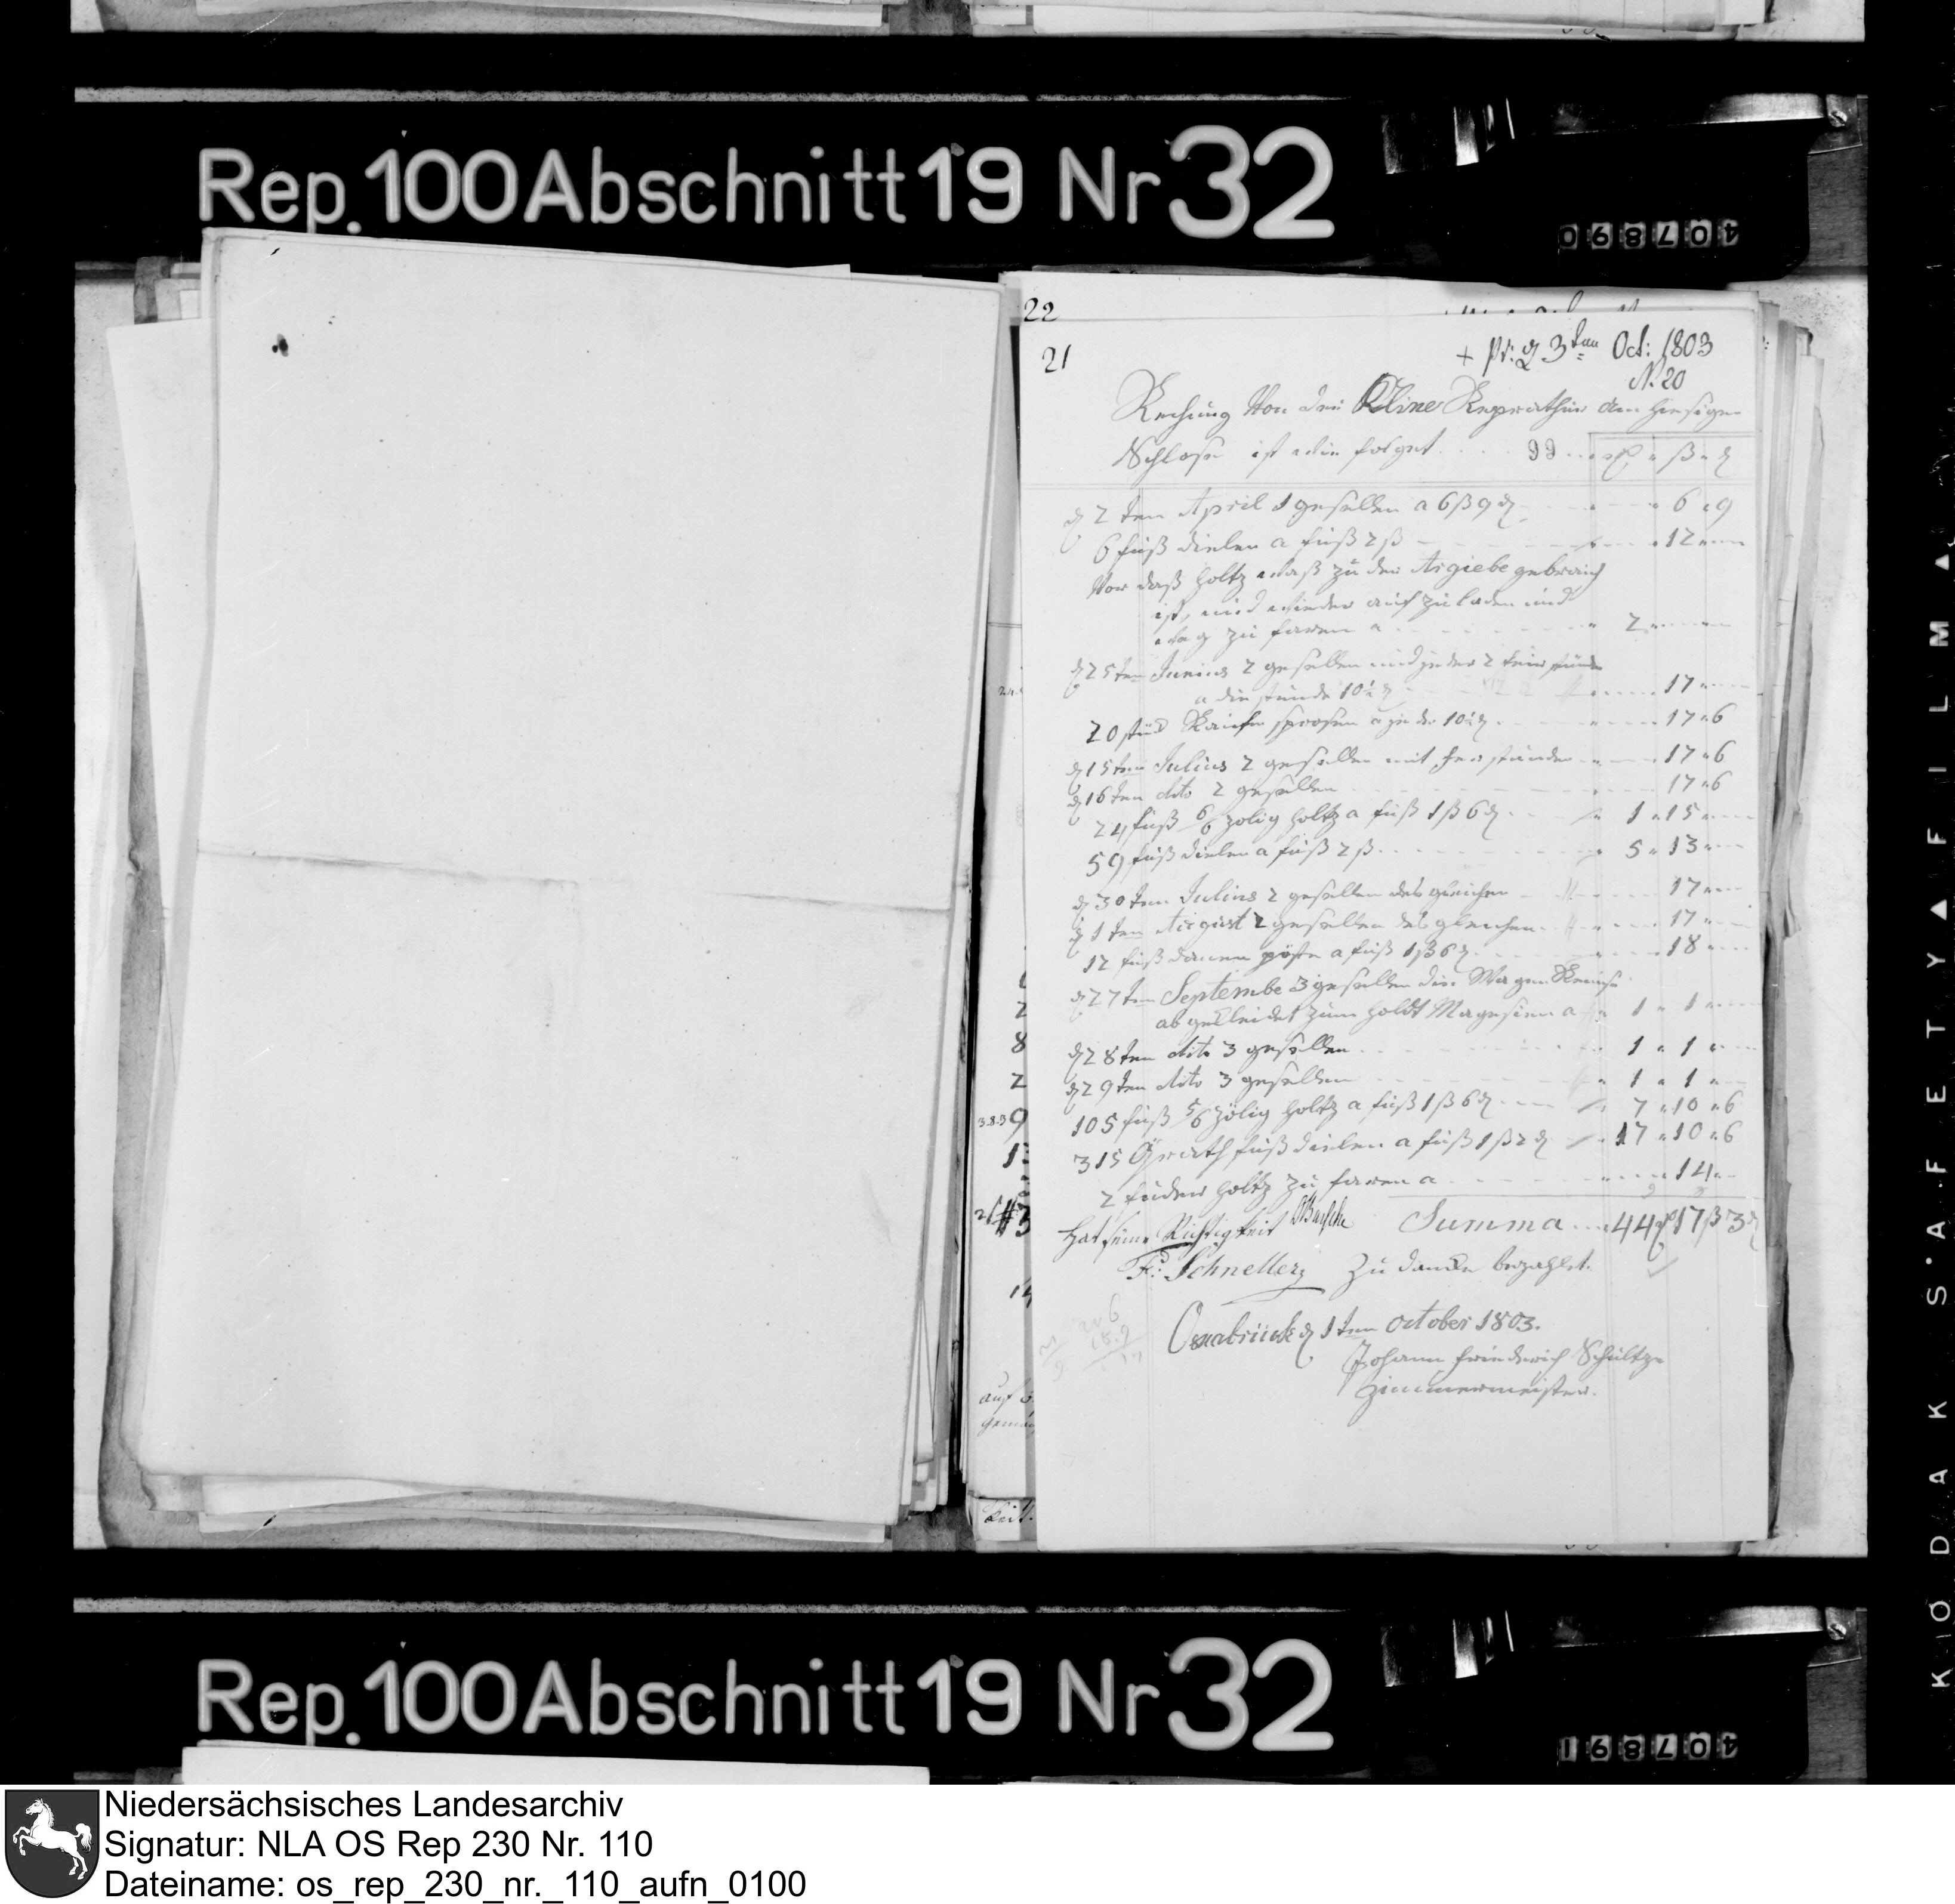 Rep. 100 Abschnitt 19 Nr 32
407890
22
21
+ pr: d 3ten Oct: 1803
N. 20
Rechnung Von den Kline Reprathur am hiesigen
Schlosse ist wie folget . . . . 99 . . rth " ß " d
d 2 ten April 1 gesellen a 6 ß 9 d " 6 " 9
6 fuß dielen a fuß 2 ß " 12 "
Vor daß holtz waß zu der gebrauch
ist, und wieder auf zu laden und
weg zu faren a " 2 "
d 25ten Junius 2 gesellen und jeder 2 stunde
a die stunde 10½ d " 17 "
20 stück Raufen sprosen a jede 10½ d " 17 " 6
d 15ten Julius 2 gesellen mit stunden " 17 " 6
d 16ten dito 2 gesellen " 17 " 6
24 fuß 6/6 zolig holtz a fuß 1 ß 6 d " 1 " 15 "
59 fuß dielen a fuß 2 ß " 5 " 13 "
d 30 ten Julius 2 gesellen des gleichen " 17 "
d 1 ten August 2 gesellen des gleichen " 17 "
12 fuß danen a fuß 1 ß 6 d " 18 "
d 27ten Septembe 3 gesellen die Wagen Remise
ab gekleidet zum holdt Magesien a " 1 " 1 "
d 28ten dito 3 gesellen " 1 " 1 "
d 29ten dito 3 gesellen " 1 " 1 "
105 fuß 5/6 zölig holtz a fuß 1 ß 6 d " 7 " 10 " 6
315 Qrath fuß dielen a fuß 1 ß 2 d " 17 " 10 " 6
2 fuder holtz zu faren a " 14 "
Hat seine Richtigkeit Summa . . . 44 rth 17 ß 3 d
Fr: Schnellerz Zu danke bezahlt.
Osnabrück d 1 ten october 1803.
Johann Friederich Schultze
Zimmermeister.
8
2
9
auf
Rep. 100 Abschnitt 19 Nr 32
407891
KODAK SAFETY FILM
Niedersächsisches Landesarchiv
Signatur: NLA OS Rep 230 Nr. 110
Dateiname: os_rep_230_nr._110_aufn_0100